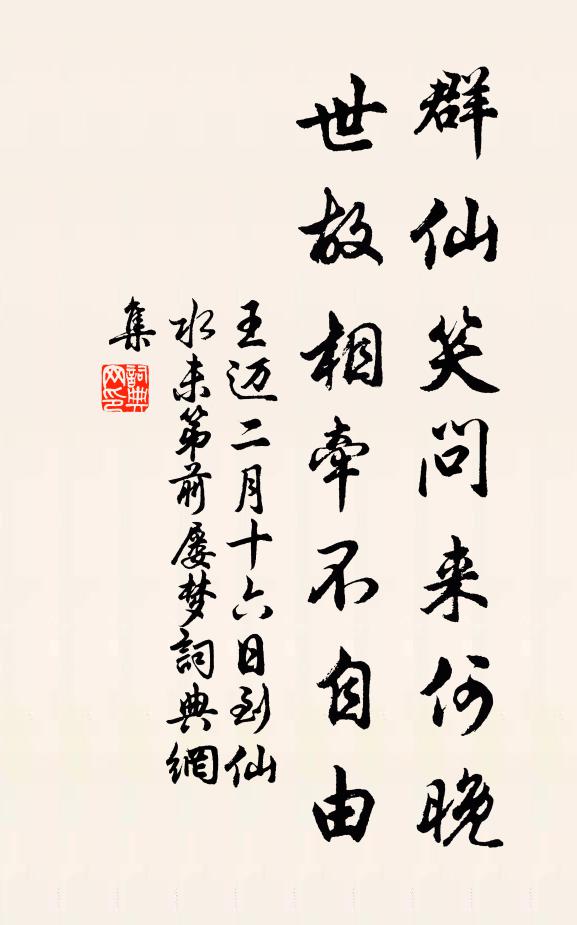 群仙笑问来何晚
世故相牵不自由
王迈二月十六日到仙
水未第前屡梦詞典網
集
詞典
网印